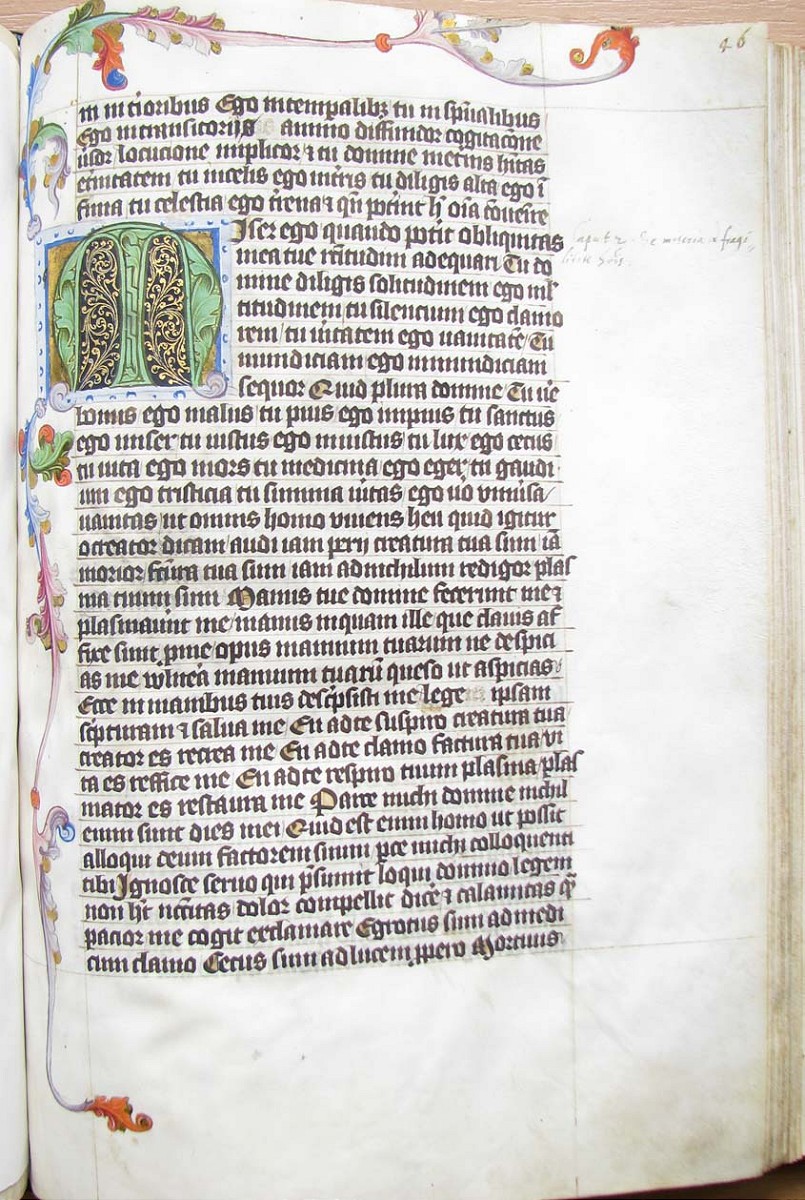 46
in intioribus Ego in tempalibꝫ tu in spūalibus
Ego in transitorijs animo diffundor cogitacōne
usor locucione implicor ⁊ tu domine metins hītas
et̄nitatem tu in celis ego in t̄ris tu diligis alta ego ī
fima tu celestia ego trena ⁊ qn̄ pot̄int h̄ oīa cōuenire
Miser ego quando pot̄it obliquitas
mea tue rc̄titudini adequari Tu do
mine diligis solitudinem ego ml̄
titudinem tu silencium ego clamo
rem tu u̾itatem ego uanitatē Tu
mundiciam ego inmundiciam
sequor Quid plura domine Tu ue̾
bonus ego malus tu pius ego impius tu sanctus
ego miser tu iustus ego iniustus tu lux ego cecus
tu uita ego mors tu medicina ego eger tu gaudi
um ego tristicia tu summa u̾itas ego uō vniu̾sa
uanitas ut omnis homo viuens heu quid igitur
o creator dicam audi iam perij creatura tua sum iā
morior fc̄ura tua sum iam ad nichilum redigor plas
ma tuum sum Manus tue domine fecerunt me ⁊
plasmauūt me manus inquam ille que clauis af
fixe sunt ꝓ me opus manuum tuarum ne despici
as me wlnera manuum tuarū queso ut aspicias
Ecce in manibus tuis desc̾psisti me lege ipsam
sc̾pturam ⁊ salua me En ad te suspiro creatura tua
creator es recrea me En ad te clamo factura tua vi
ta es reffice me En ad te respiro tuum plasma plas
mator es restaura me Parce michi domine nichil
enim sunt dies mei Quid est enim homo ut possit
alloqui deum factorem suum p̄ce michi colloquenti
tibi Ignosce seruo qui p̄sumit loqui domino legem
non ht̄ nc̄citas dolor compellit dic̄e ⁊ calamitas qm̄
pacior me cogit exclamare Egrotus sum ad medi
cum clamo Cecus sum ad lucem ꝓpero Mortuus
Caput 2. De miseria et fragi
litate hōis.